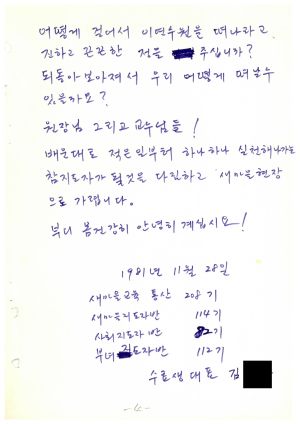 어떻게 걸어서 이 연수원을 떠나라고
진하고 끈끈한 정을 주십니까?
되돌아 보아져서 우리 어떻게 떠날수
있을까요?
원장님 그리고 교수님들!
배운대로 적은일부터 하나하나 실천해나가는
참지도자가 될것을 다짐하고 새마을현장
으로 가렵니다.
부디 몸건강히 안녕히 계십시요!
1981년 11월 28일
새마을교육 통산 208기
새마을지도자반 114기
사회지도자반 82기
부녀지도자반 112기
수료생대표 김
-4-